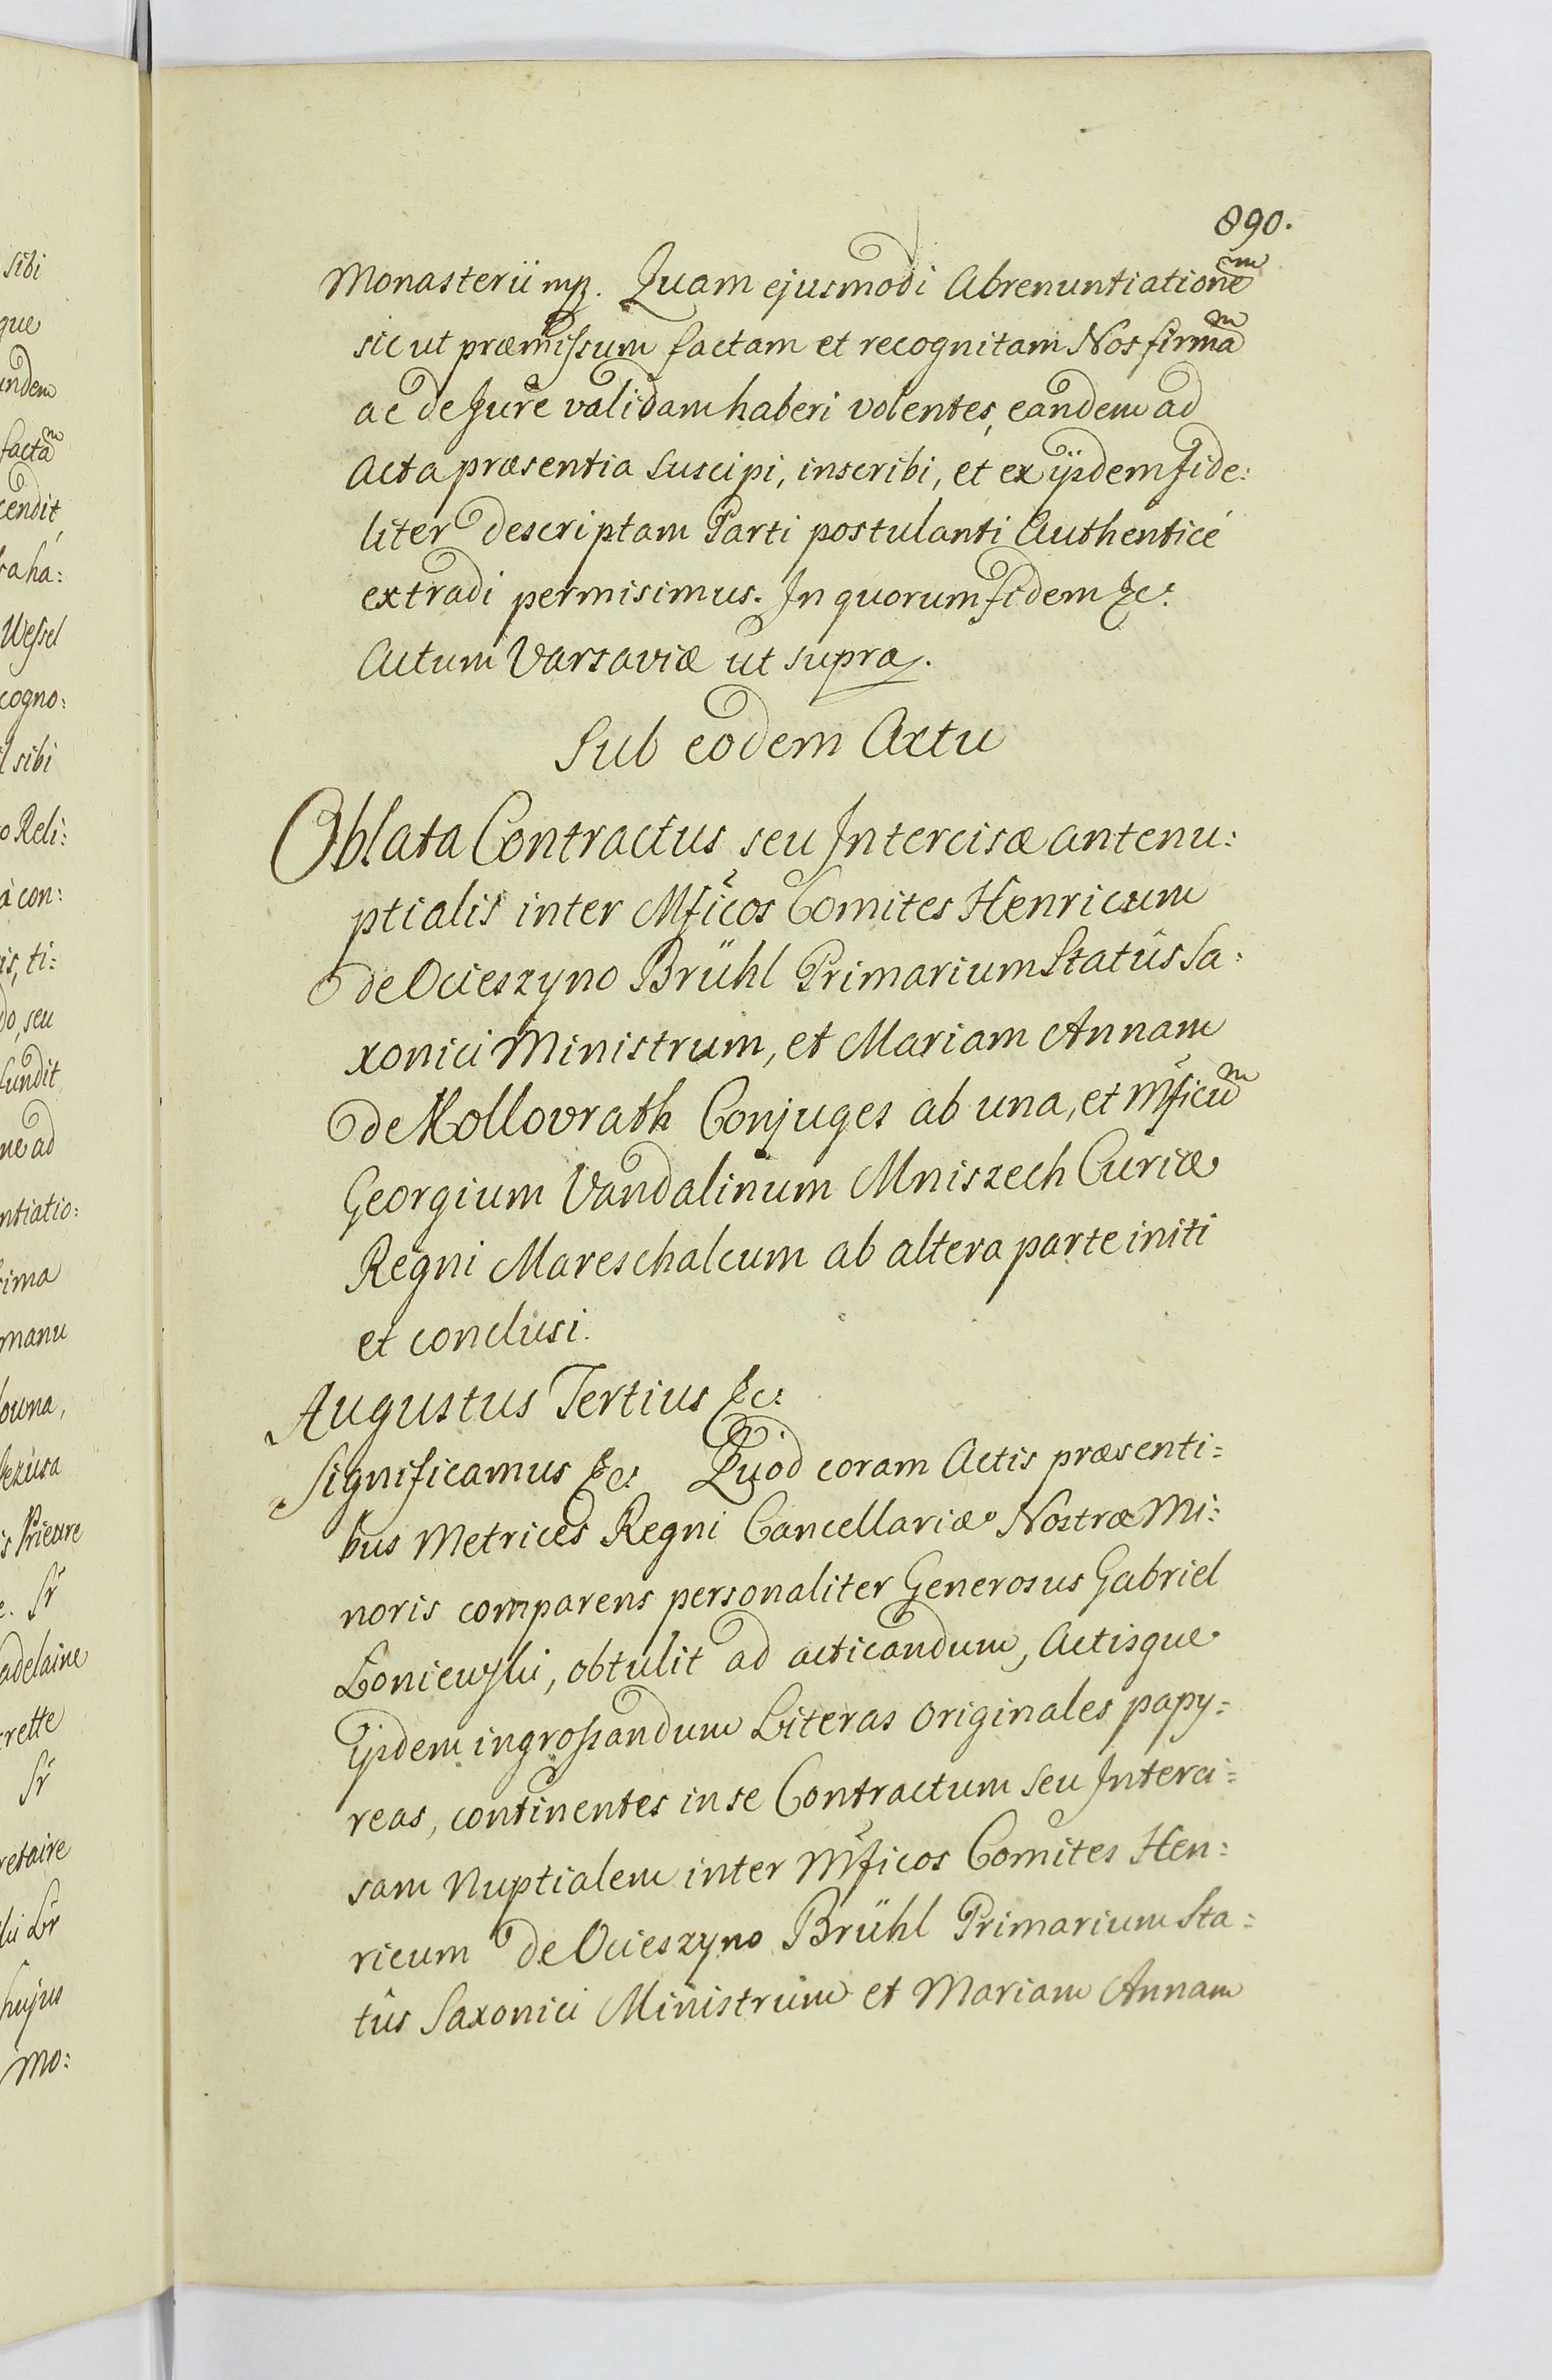 890.
Monasterii mp. Quam ejusmodi Abrenuntiationem
sic ut præmissum factam et recognitam Nos firmam
ac de Jure validam haberi volentes, eandem ad
Acta præsentia suscipi, inscribi, et ex ijsdem fide:
liter descriptam Parti postulanti Authenticè
extradi permisimus. In quorum fidem &c.
Actum Varsaviæ ut supra.
Sub eodem Actu
Oblata Contractus seu Intercisæ antenu:
ptialis inter Mficos Comites Henricum
de Ocieszyno Brühl Primarium Statûs Sa:
xonici Ministrum, et Mariam Annam
de Kollovrath Conjuges ab una, et Mficum
Georgium Vandalinum Mniszech Curiæ
Regni Mareschalcum ab altera parte initi
et conclusi.
Augustus Tertius &c.
Significamus &c. Quod coram Actis præsenti=
bus Metrices Regni Cancellariæ Nostræ Mi:
noris comparens personaliter Generosus Gabriel
Łoniewski, obtulit ad acticandum, Actisque
ijsdem ingrossandum Literas originales papy=
reas, continentes in se Contractum seu Interci=
sam Nuptialem inter Mficos Comites Hen:
ricum de Ocieszyno Brühl Primarium Sta=
tûs Saxonici Ministrum et Mariam Annam
sibi
que
undem
factam
cendit
raha:
Wessel
cogno:
l sibi
o Reli:
à con:
is, ti=
do, seu
fundit
ne ad
ntiatio:
rima
manu
ouna,
s Prieure
e. Sr
adelaine
rette
Sr
retaire
hujus
Mo: